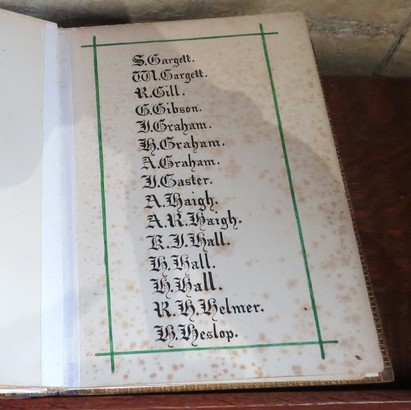 S. Gargett.
W. Gargett.
R. Gill.
G. Gibson.
J. Graham.
H. Graham.
A. Graham.
J. Gaster.
A. Haigh.
A. R. Haigh.
K. J. Hall.
H. Hall.
H. Hall.
R. H. Helmer.
H. Heslop.